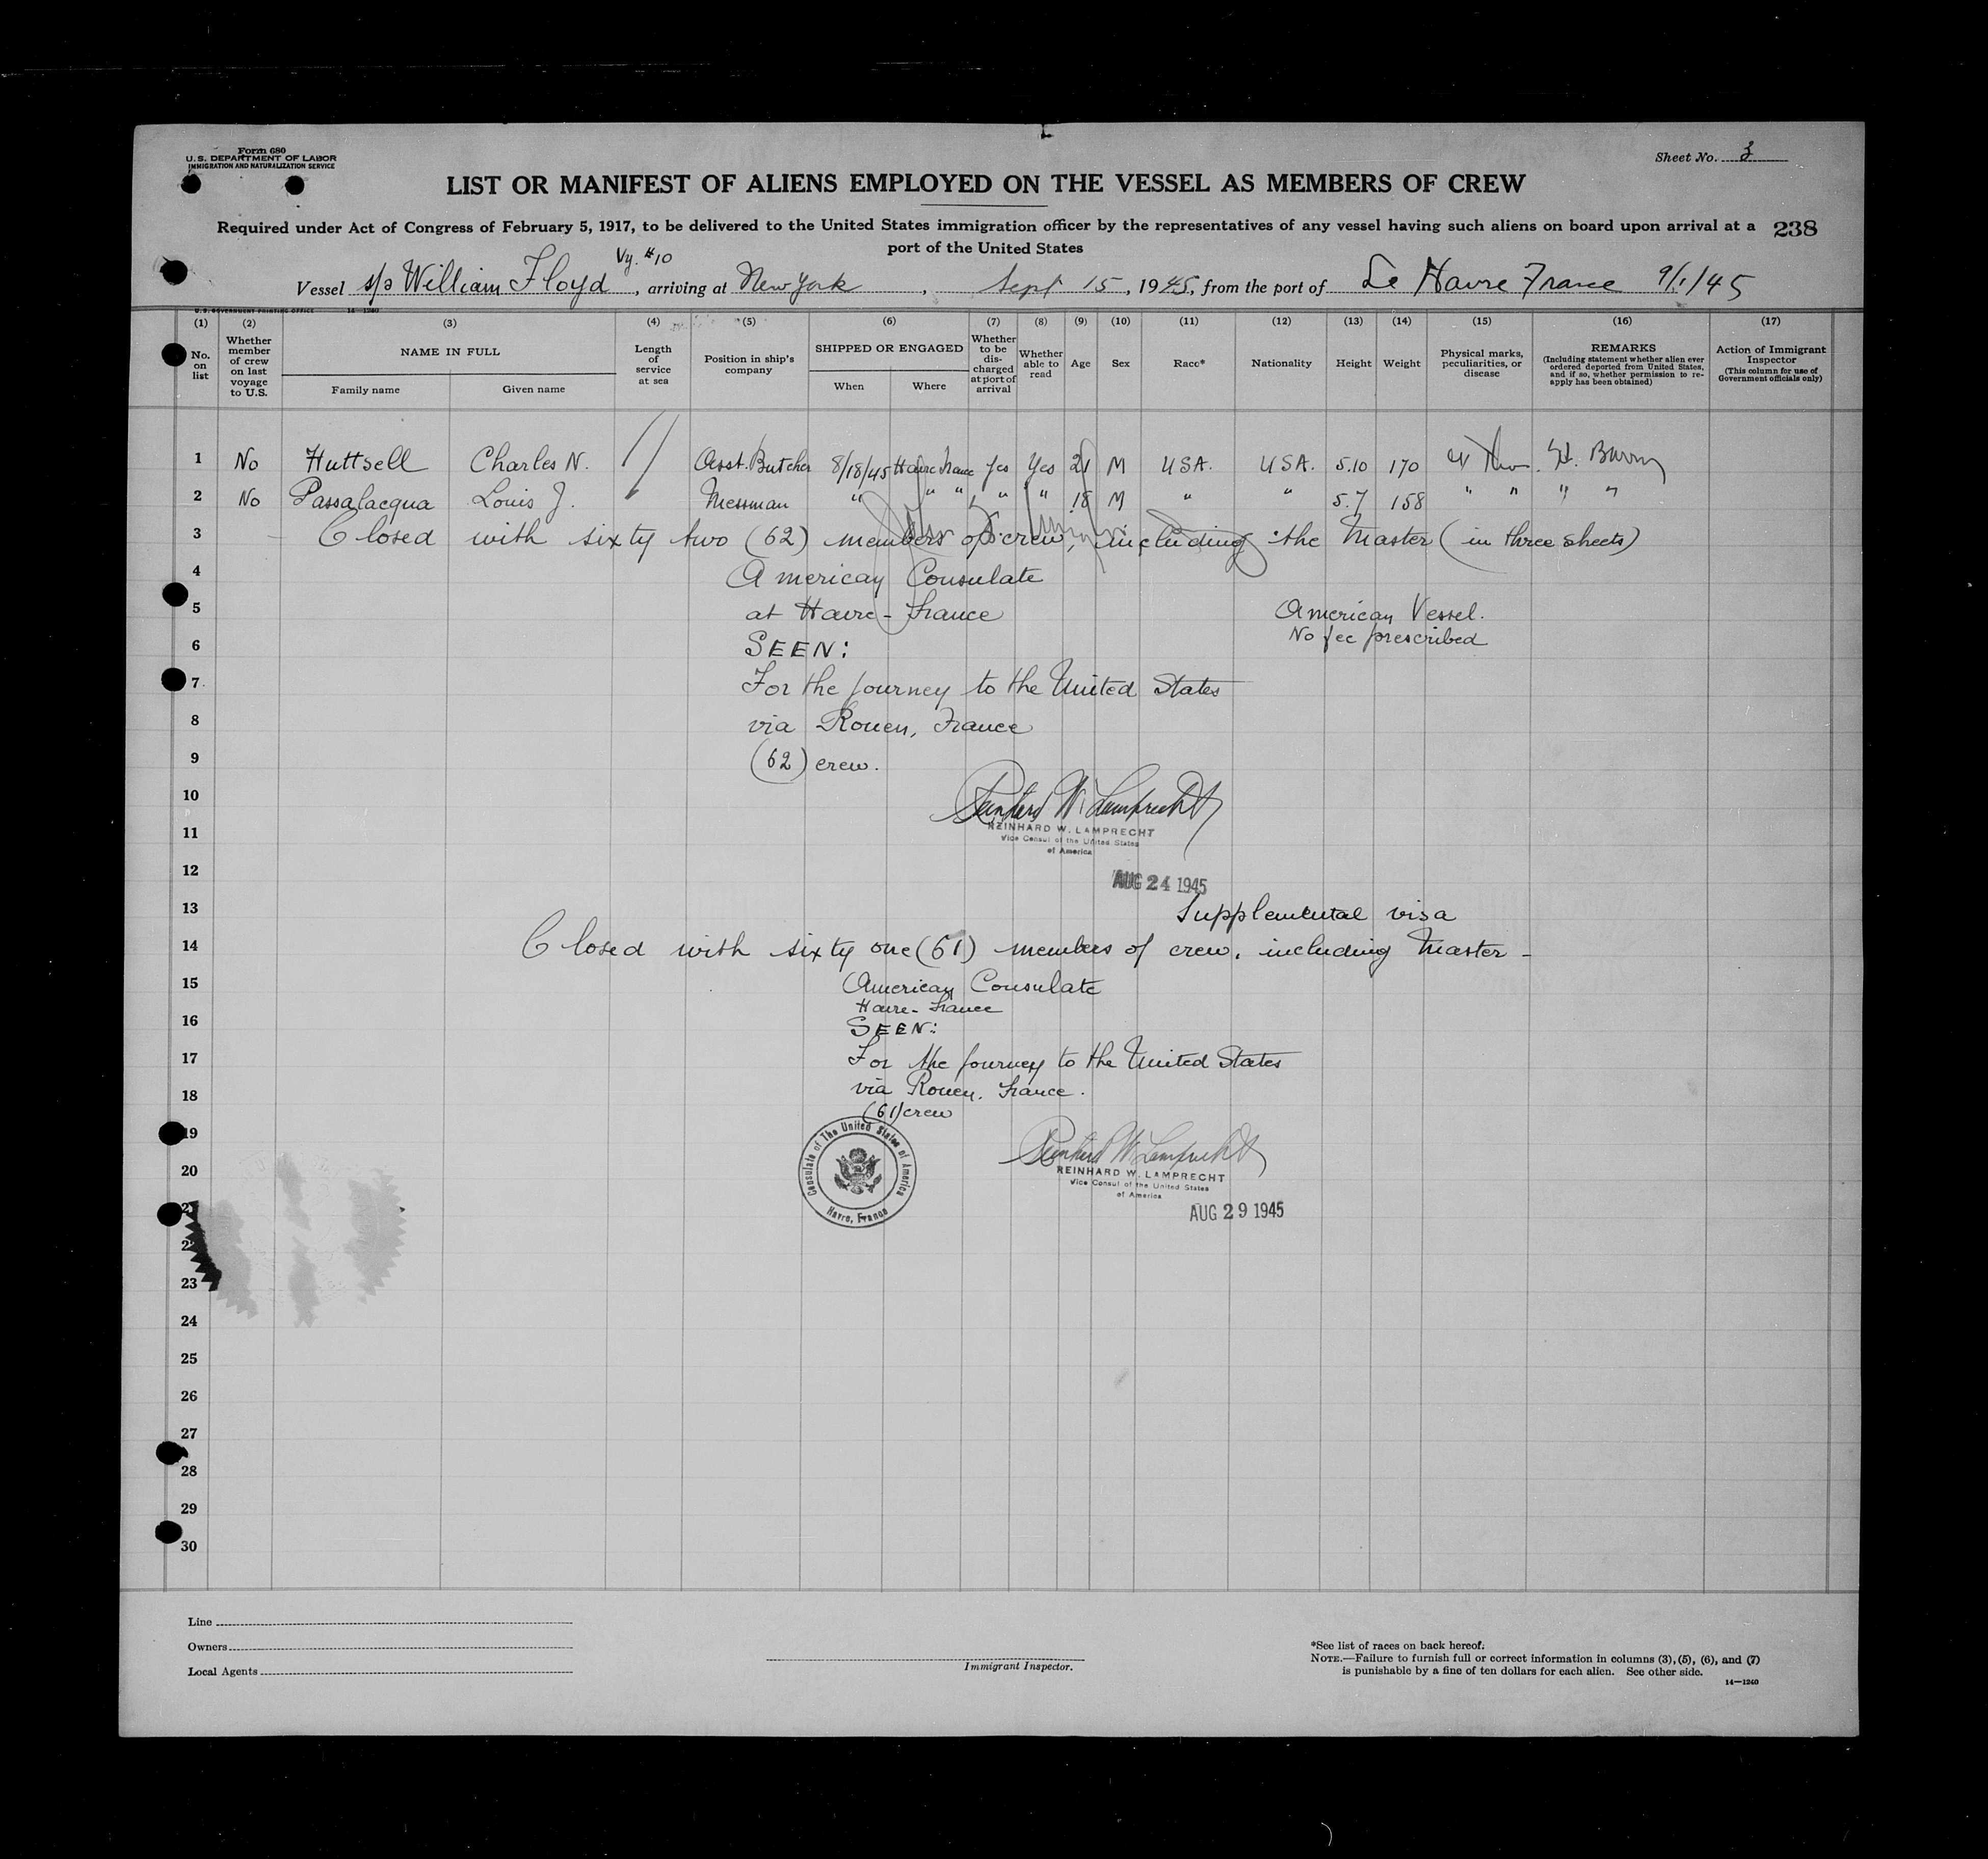 Form 680
U. S. DEPARTMENT OF LABOR
IMMIGRATION AND NATURALIZATION SERVICE
Sheet No. 3
LIST OR MANIFEST OF ALIENS EMPLOYED ON THE VESSEL AS MEMBERS OF CREW
Required under Act of Congress of February 5, 1917, to be delivered to the United States immigration officer by the representatives of any vessel having such aliens on board upon arrival at a
port of the United States
238
Vy. #10
Vessel s/s William Floyd, arriving at New York, Sept 15, 1945, from the port of Le Havre France 9/1/45
U. S. GOVERNMENT PRINTING OFFICE 14—1240
(1) (2) (3) (4) (5) (6) (7) (8) (9) (10) (11) (12) (13) (14) (15) (16) (17)
No. on list
Whether member of crew on last voyage to U.S.
NAME IN FULL
Family name Given name
Length of service at sea
Position in ship's company
SHIPPED OR ENGAGED
When Where
Whether to be discharged at port of arrival
Whether able to read
Age
Sex
Race*
Nationality
Height
Weight
Physical marks, peculiarities, or disease
REMARKS
(Including statement whether alien ever ordered deported from United States, and if so, whether permission to re-apply has been obtained)
Action of Immigrant Inspector
(This column for use of Government officials only)
1 No Huttsell Charles N. Asst. Butcher 8/18/45 Havre France Yes Yes 21 M USA. USA. 5.10 170
2 No Passalacqua Louis J. Messman " " " " " 18 M " " 5.7 158 " " " "
3 Closed with sixty two (62) members of crew, including the Master (in three sheets)
4 American Consulate
5 at Havre - France
American Vessel.
No fee prescribed
6 SEEN:
7 For the journey to the United States
8 via Rouen, France
9 (62) crew.
10 Reinhard W. Lamprecht
11 REINHARD W. LAMPRECHT
Vice Consul of the United States
of America
12 AUG 24 1945
13 Supplemental visa
14 Closed with sixty one (61) members of crew, including Master -
15 American Consulate
Havre - France
16 SEEN:
17 For the journey to the United States
18 via Rouen, France.
(61) crew
19 Consulate of The United States of America
Havre, France
Reinhard W. Lamprecht
20 REINHARD W. LAMPRECHT
Vice Consul of the United States
of America
AUG 29 1945
23
24
25
26
27
28
29
30
Line
Owners
Local Agents
Immigrant Inspector.
*See list of races on back hereof.
NOTE.—Failure to furnish full or correct information in columns (3), (5), (6), and (7)
is punishable by a fine of ten dollars for each alien. See other side.
14—1240